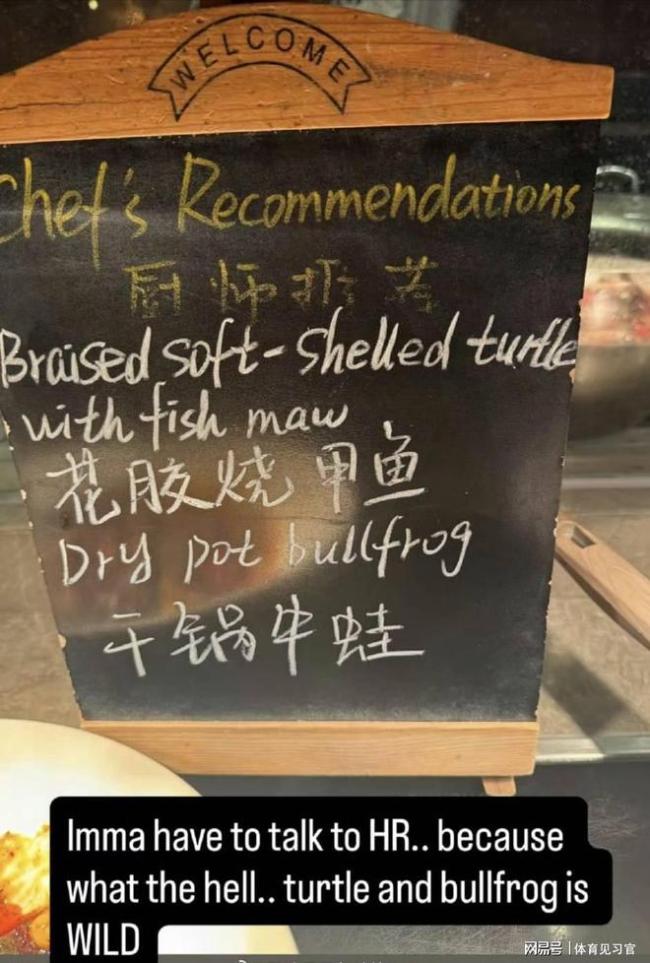 WELCOME
Chef's Recommendations
厨师推荐
Braised soft-shelled turtle
with fish maw
花胶烧甲鱼
Dry pot bullfrog
干锅牛蛙
Imma have to talk to HR.. because
what the hell.. turtle and bullfrog is
WILD
网易号 | 体育见习官